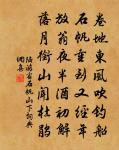 卷地東風吹釣船
石帆重到又經年
放翁夜半酒初解
落月銜山聞杜鵑
陸游宿石帆山下詞典
網集